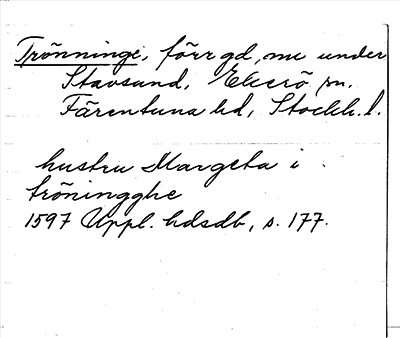 Trönninge, förr gd, nu under
Stavsund, Ekerö sn.
Färentuna hd, Stockh. l.
hustru Margeta i
tröningghe
1597 Uppl. hdsdb, s. 177.